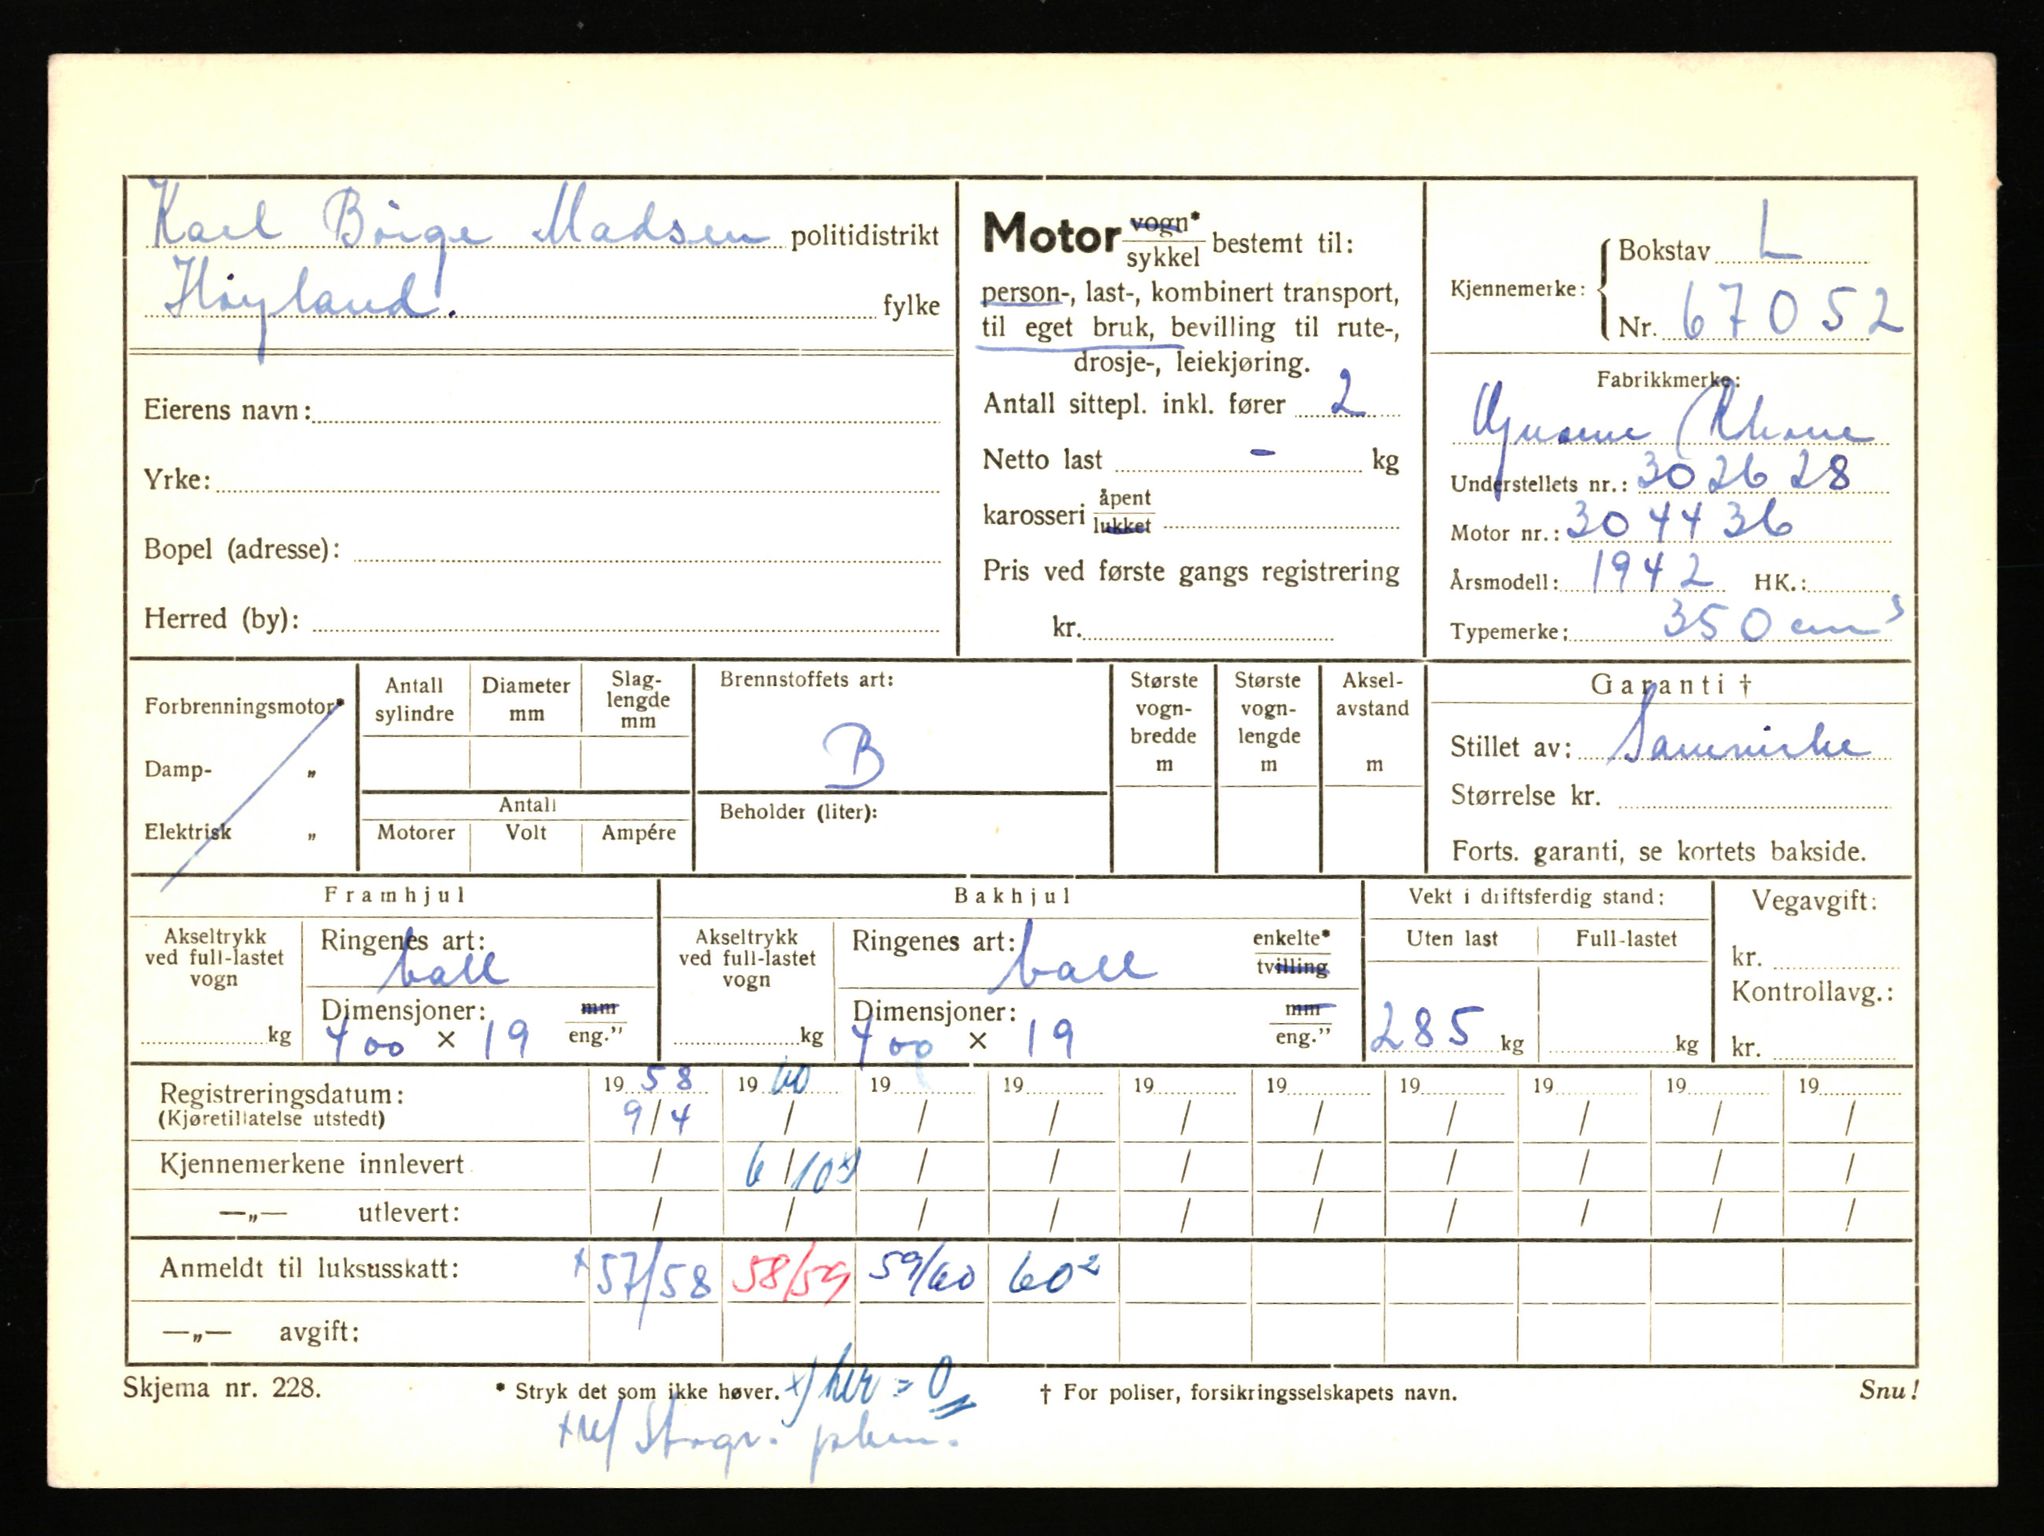 Karl Börge Madsen politidistrikt
Höyland. fylke
Eierens navn:
Yrke:
Bopel (adresse):
Herred (by):
Motor vogn* sykkel bestemt til:
person-, last-, kombinert transport,
til eget bruk, bevilling til rute-,
drosje-, leiekjøring.
Antall sittepl. inkl. fører 2
Netto last - kg
karosseri åpent lukket
Pris ved første gangs registrering
kr.
Kjennemerke: Bokstav L
Nr. 67052
Fabrikkmerke:
Rhone
Understellets nr.: 302628
Motor nr.: 304436
Årsmodell: 1942 HK.:
Typemerke: 350 cm³
Forbrenningsmotor*
Damp- „
Elektrisk „
Antall sylindre
Diameter mm
Slag-lengde mm
Antall
Motorer Volt Ampére
Brennstoffets art:
B
Beholder (liter):
Største vogn-bredde m
Største vogn-lengde m
Aksel-avstand m
Garanti †
Stillet av:
Størrelse kr.
Forts. garanti, se kortets bakside.
Framhjul
Akseltrykk ved full-lastet vogn
kg
Ringenes art:
ball
Dimensjoner: mm
400 × 19 eng."
Bakhjul
Akseltrykk ved full-lastet vogn
kg
Ringenes art: enkelte*
ball tvilling
Dimensjoner: mm
400 × 19 eng."
Vekt i driftsferdig stand:
Uten last Full-lastet
285 kg kg
Vegavgift:
kr.
Kontrollavg.:
kr.
Registreringsdatum: 1958 1960 19 19 19 19 19 19 19 19
(Kjøretillatelse utstedt) 9/4 / / / / / / / / /
Kjennemerkene innlevert / 6/10 x) / / / / / / / /
—„— utlevert: / / / / / / / / / /
Anmeldt til luksusskatt: x 57/58 58/59 59/60 60²
—„— avgift:
Skjema nr. 228. * Stryk det som ikke høver. x) her = 0 † For poliser, forsikringsselskapets navn. Snu!